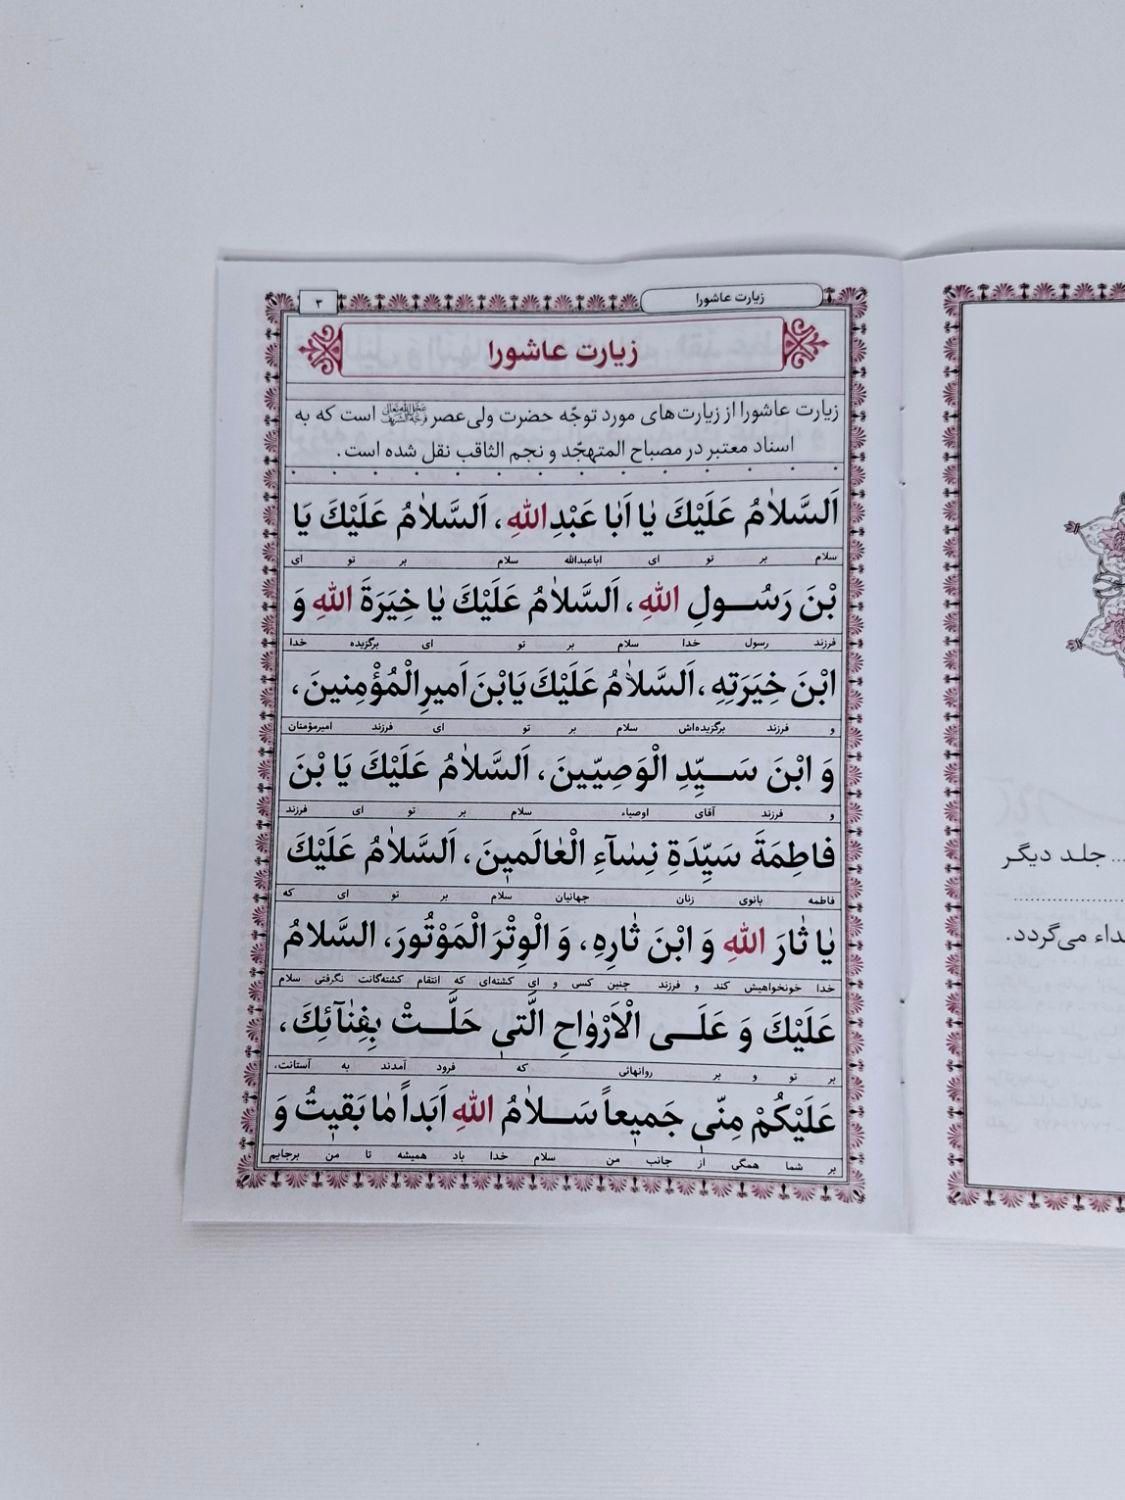 زیارت عاشورا
۳
زیارت عاشورا
زیارت عاشورا از زیارت‌های مورد توجّه حضرت ولی‌عصر عَجَّلَ‌اللّٰهُ‌تَعالیٰ‌فَرَجَهُ‌الشَّریف است که به
اسناد معتبر در مصباح المتهجّد و نجم الثاقب نقل شده است.
اَلسَّلاٰمُ عَلَيْكَ يٰا اَبٰا عَبْدِاللهِ، اَلسَّلاٰمُ عَلَيْكَ يَا
سلام بر تو ای اباعبدالله سلام بر تو ای
بْنَ رَسُـولِ اللهِ، اَلسَّلاٰمُ عَلَيْكَ يٰا خِيَرَةَ اللهِ وَ
فرزند رسول خدا سلام بر تو ای برگزیده خدا
ابْنَ خِيَرَتِهِ، اَلسَّلاٰمُ عَلَيْكَ يَابْنَ اَميرِالْمُؤْمِنينَ،
و فرزند برگزیده‌اش سلام بر تو ای فرزند امیرمؤمنان
وَ ابْنَ سَـيِّدِ الْوَصِيّينَ، اَلسَّلاٰمُ عَلَيْكَ يَا بْنَ
و فرزند آقای اوصیاء سلام بر تو ای فرزند
فاطِمَةَ سَيِّدَةِ نِسٰآءِ الْعٰالَمينَ، اَلسَّلاٰمُ عَلَيْكَ
فاطمه بانوی زنان جهانیان سلام بر تو ای که
يٰا ثٰارَ اللهِ وَ ابْنَ ثٰارِهِ، وَ الْوِتْرَ الْمَوْتُورَ، السَّلاٰمُ
خدا خونخواهیش کند و فرزند چنین کسی و ای کشته‌ای که انتقام کشته‌گانت نگرفتی سلام
عَلَيْكَ وَ عَلَـى الْاَرْوٰاحِ الَّتي حَلَّـتْ بِفِنٰآئِكَ،
بر تو و بر روانهائی که فرود آمدند به آستانت،
عَلَيْكُمْ مِنّي جَميعاً سَـلاٰمُ اللهِ اَبَداً مٰا بَقيتُ وَ
بر شما همگی از جانب من سلام خدا باد همیشه تا من برجایم
... جلد دیگر
داء می‌گردد.